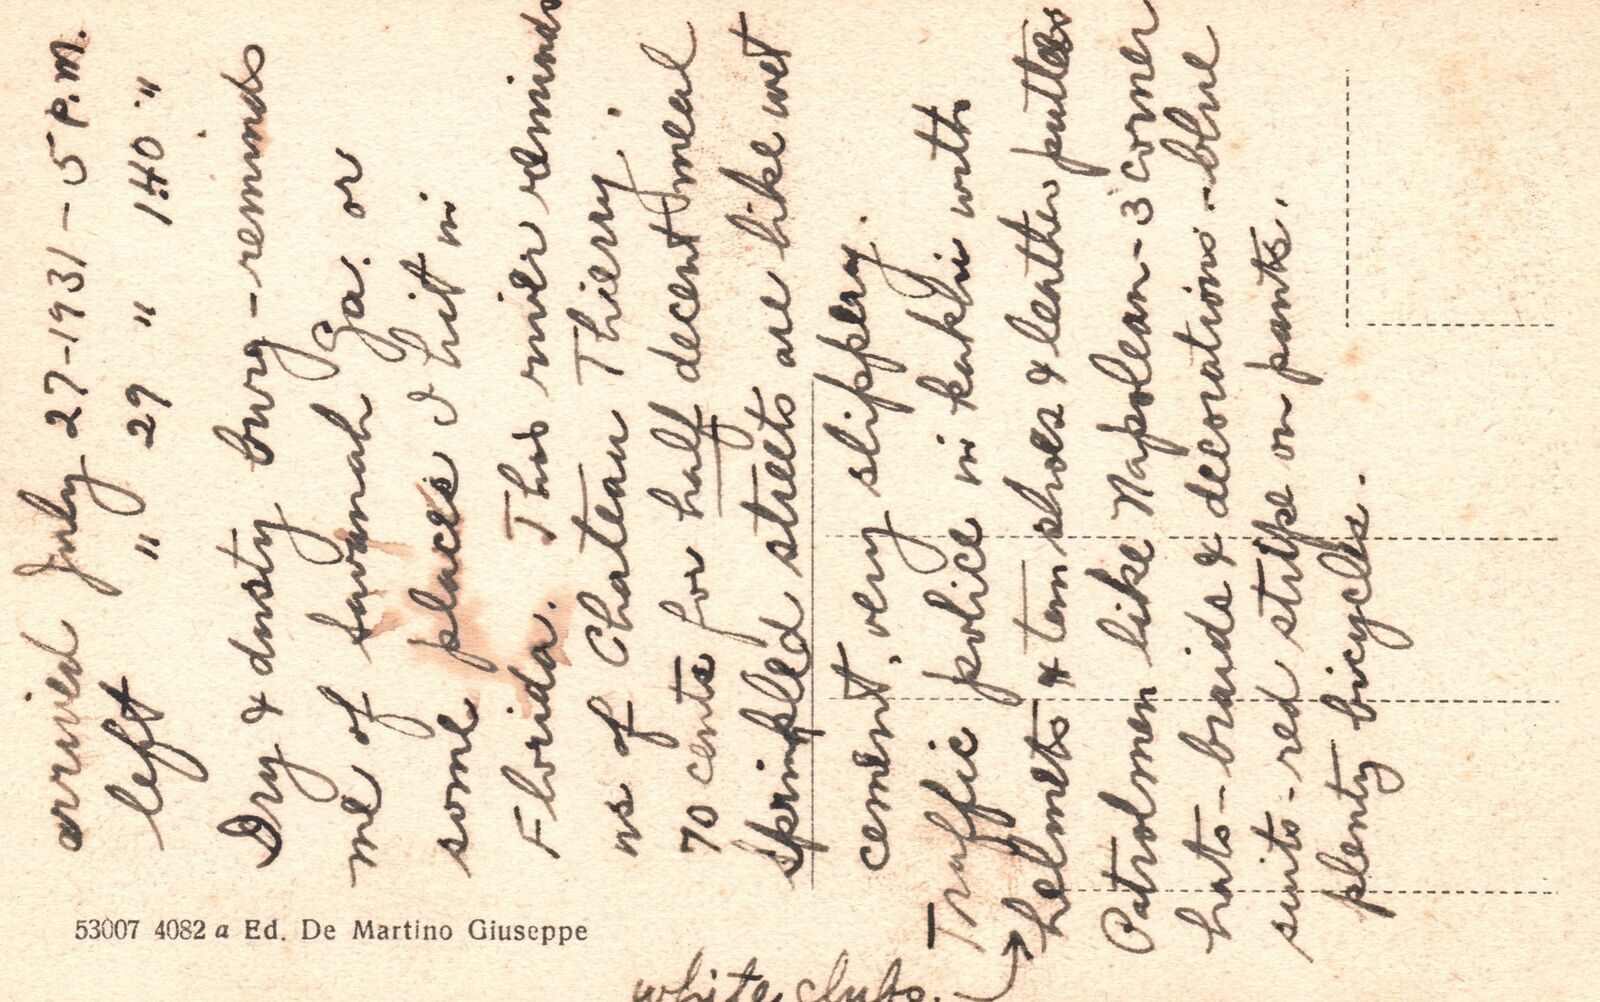 arrived July 27-1931 - 5 P.M.
left " 29 " 1:40 "
Dry & dusty burg - reminds
me of Savannah Ga. or
some places I hit in
Florida. This river reminds
us of Chateau Thierry.
70 cents for half decent meal
Sprinkled streets are like wet
cement, very slippery.
Traffic police in kakhi with
helmets & tan shoes & leather puttees
Patrolmen like Napolean - 3 corner
hats - braids & decorations - blue
suits - red stripe on pants.
plenty bicycles.
white clubs.
53007 4082 a Ed. De Martino Giuseppe